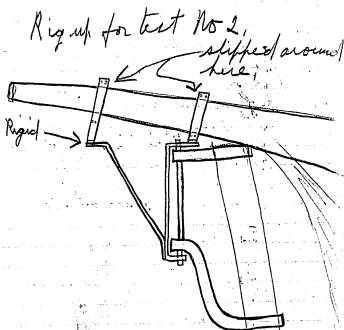 Rig up for test No 2.
slipped around
here,
Rigid